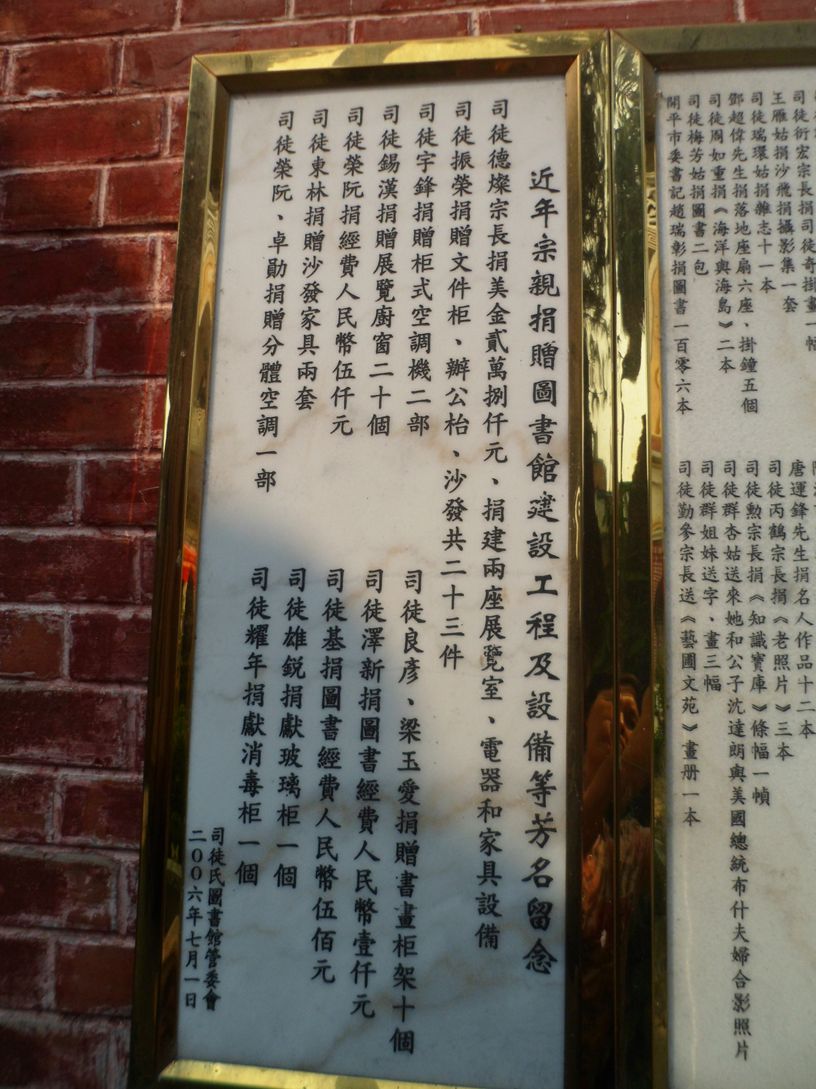 司徒衍宏宗長捐司徒奇掛畫一幅
王雁姑捐沙飛捐攝影集一套
司徒瑞環姑捐雜志十一本
鄧超偉先生捐落地座扇六座、掛鐘五個
司徒周如重捐《海洋與海島》二本
司徒梅芳姑捐圖書二包
開平市委書記趙瑞彰捐圖書一百零六本
唐運鋒先生捐名人作品十二本
司徒丙鶴宗長捐《老照片》三本
司徒勲宗長捐《知識寶庫》條幅一幀
司徒群杏姑送來她和公子沈達朗與美國總統布什夫婦合影照片
司徒群姐妹送字、畫三幅
司徒勤參宗長送《藝圃文苑》畫册一本
近年宗親捐贈圖書館建設工程及設備等芳名留念
司徒德燦宗長捐美金貳萬捌仟元、捐建兩座展覽室、電器和家具設備
司徒振榮捐贈文件柜、辦公枱、沙發共二十三件
司徒宇鋒捐贈柜式空調機二部
司徒錫漢捐贈展覽廚窗二十個
司徒榮阮捐經費人民幣伍仟元
司徒東林捐贈沙發家具兩套
司徒榮阮、卓勛捐贈分體空調一部
司徒良彦、梁玉愛捐贈書畫柜架十個
司徒澤新捐圖書經費人民幣壹仟元
司徒基捐圖書經費人民幣伍佰元
司徒雄鋭捐獻玻璃柜一個
司徒耀年捐獻消毒柜一個
司徒氏圖書館管委會
二〇〇六年七月一日